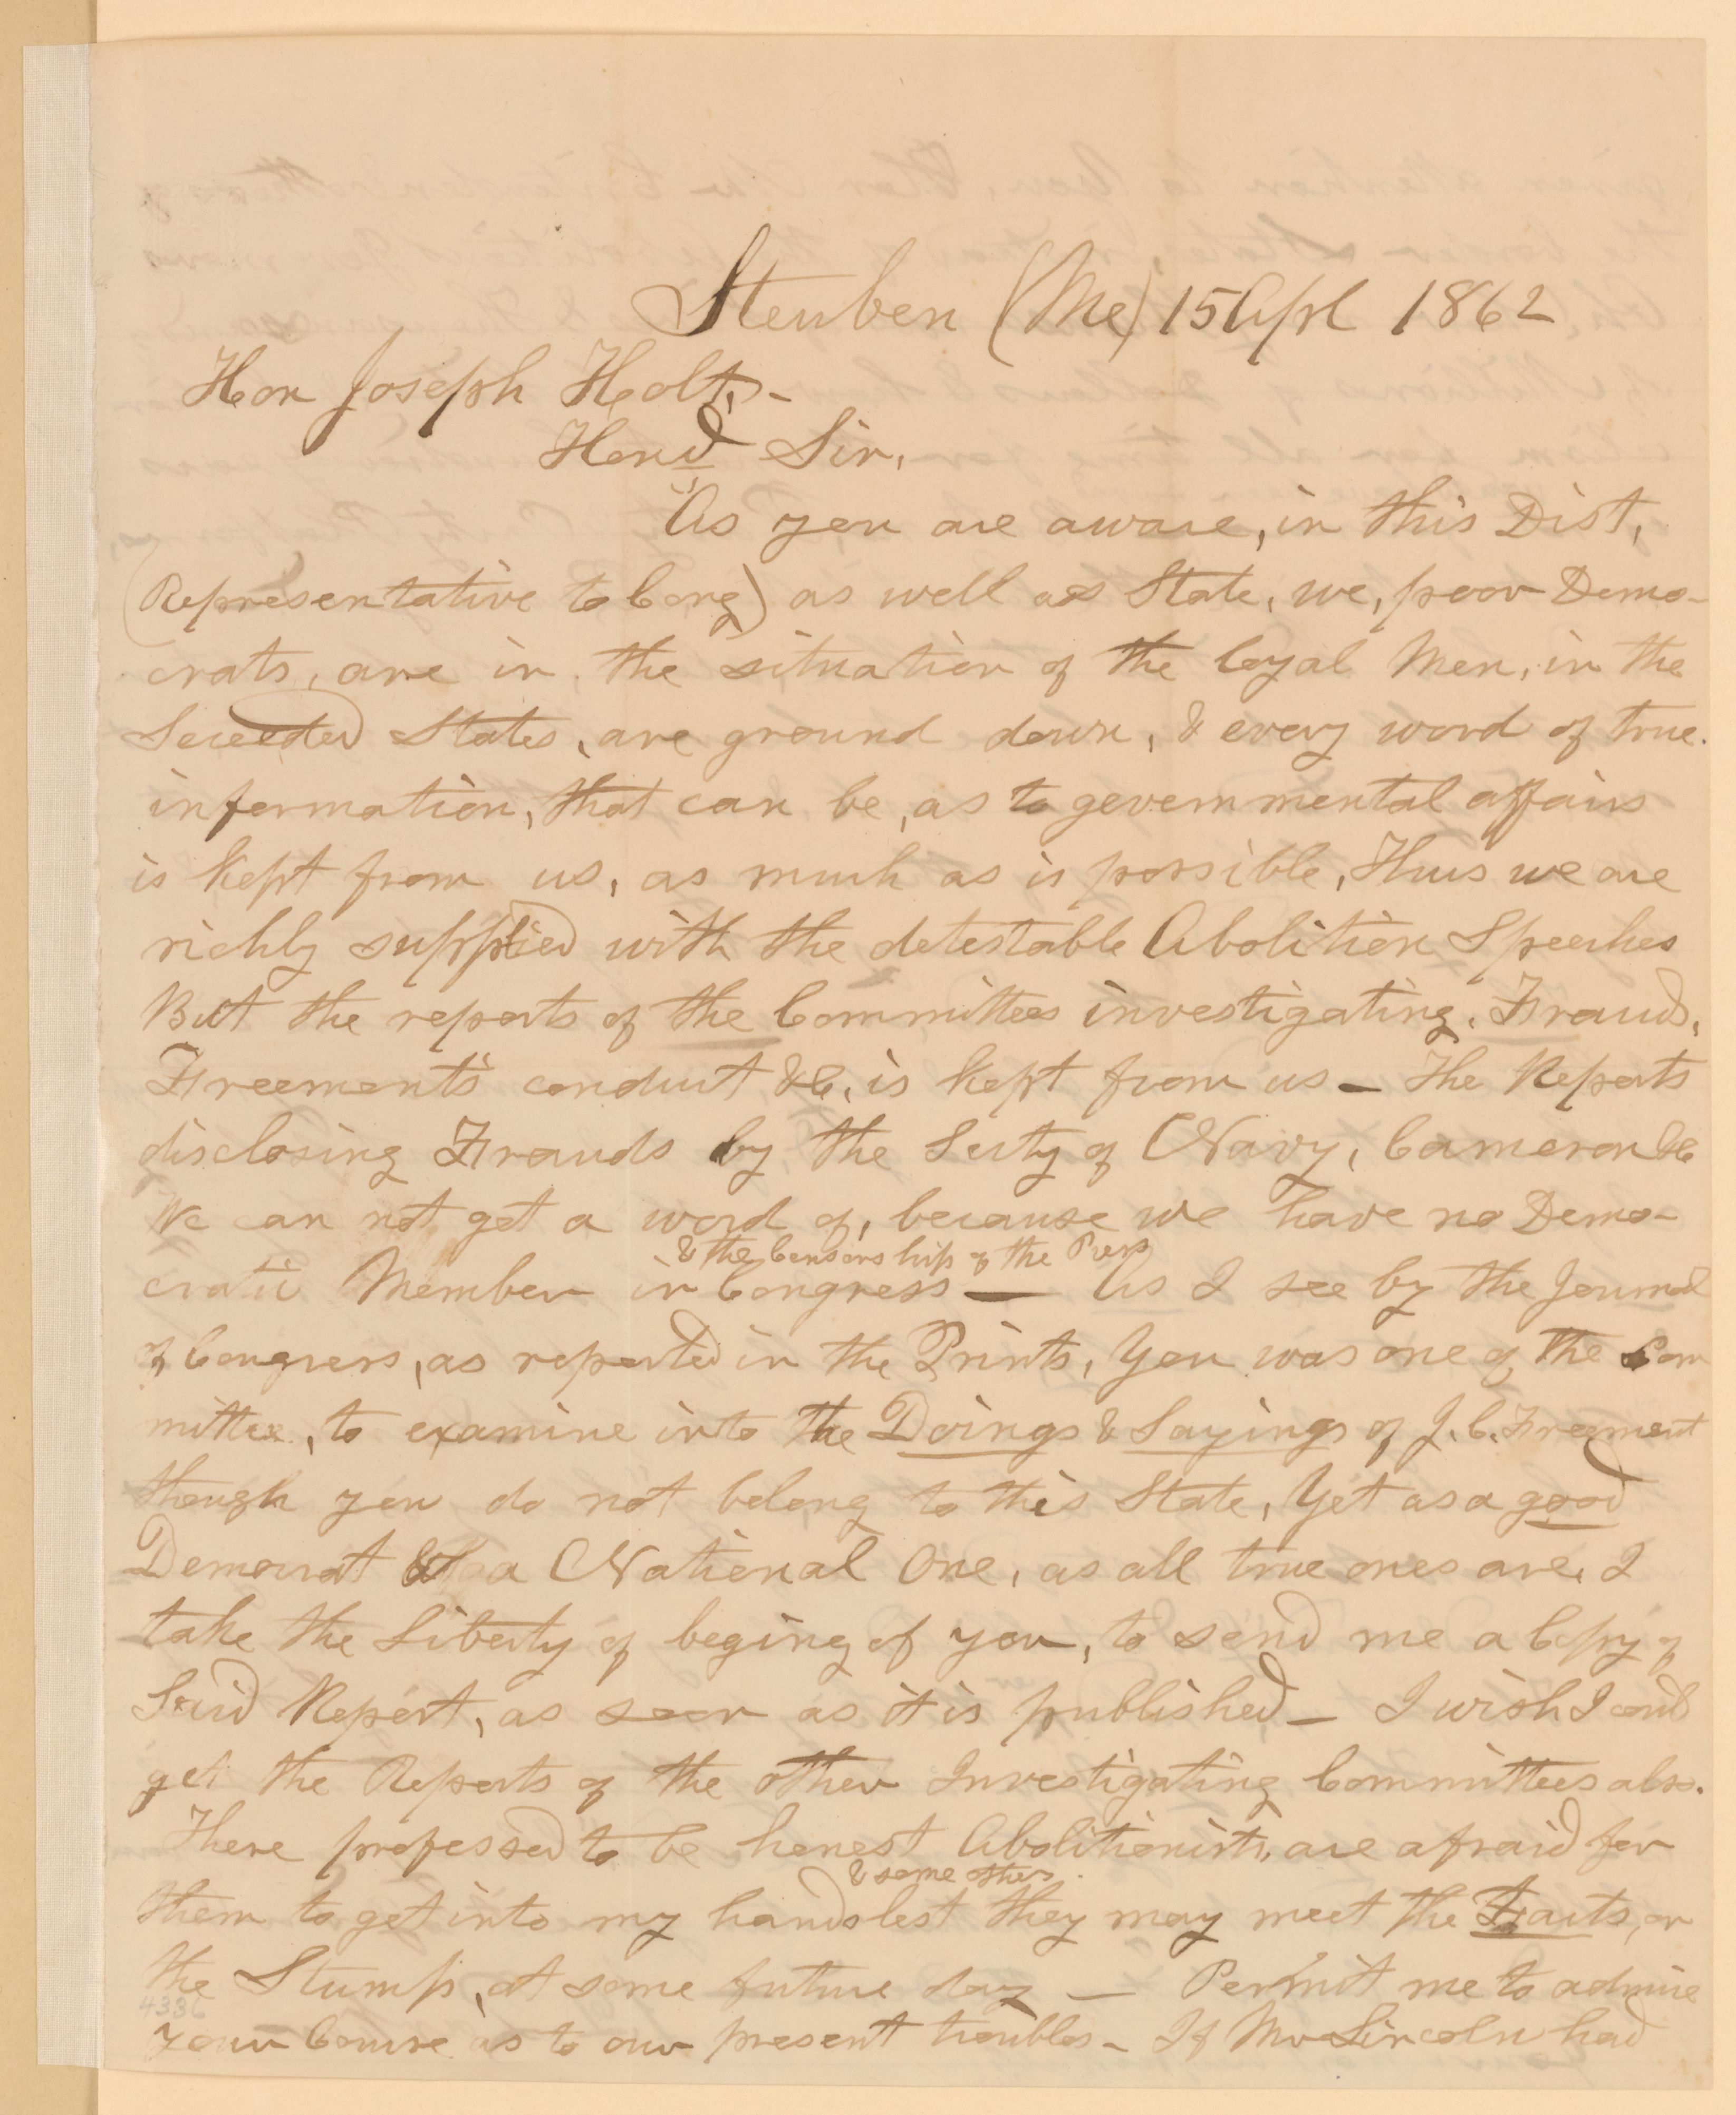 Steuben (Me) 15 Apl 1862
Hon Joseph Holt,-
Hond Sir,
As you are aware, in this Dist,
(Representative to Cong) as well as State, we, poor Demo-
crats, are in the situation of the loyal Men, in the
Seceeded States, are ground down, & every word of true
information, that can be, as to governmental affairs
is kept from us, as much as is possible, Thus we are
richly supplied with the detestable Abolition Speeches
But the reports of the Committees investigating Frauds,
Freements conduct &c, is kept from us - The Reports
disclosing Frauds by the Secty of Navy, Cameron &c
We can not get a word of, because we have no Demo-
& the Censorship of the Press
cratic Member in Congress — As I see by the Journal
of Congress, as reported in the Prints, You was one of the Com
mittee, to examine into the Doings & Sayings of J. C. Freement
though you do not belong to this State, Yet as a good
Democrat & a National One, as all true ones are, I
take the Liberty of beging of you, to send me a Copy of
Said Report, as soon as it is published - I wish I could
get the Reports of the other Investigating Committees also.
There professed to be honest Abolitionists, are afraid for
& some others
them to get into my hands lest they may meet the Facts, on
the Stump, at some future day — Permit me to admire
4336
Your Course as to our present troubles - If Mr Lincoln had